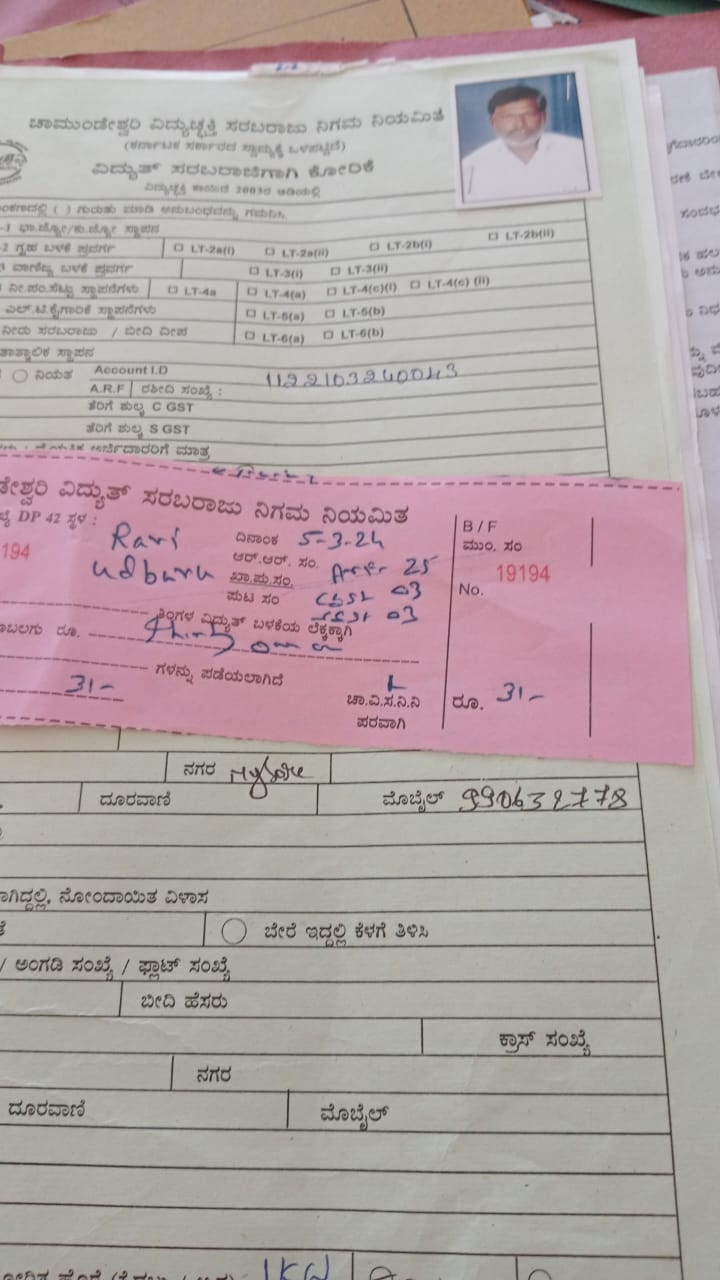 ಚಾಮುಂಡೇಶ್ವರಿ ವಿದ್ಯುಚ್ಛಕ್ತಿ ಸರಬರಾಜು ನಿಗಮ ನಿಯಮಿತ
(ಕರ್ನಾಟಕ ಸರ್ಕಾರದ ಸ್ವಾಮ್ಯಕ್ಕೆ ಒಳಪಟ್ಟಿದೆ)
ವಿದ್ಯುತ್ ಸರಬರಾಜಿಗಾಗಿ ಕೋರಿಕೆ
ವಿದ್ಯುಚ್ಛಕ್ತಿ ಕಾಯಿದೆ 2003ರ ಅಡಿಯಲ್ಲಿ
( ) ಗುರುತು ಮಾಡಿ ಅನುಬಂಧವನ್ನು ಗಮನಿಸಿ.
-2 ಗೃಹ ಬಳಕೆ ಪ್ರವರ್ಗ LT-2a(i) LT-2a(ii) LT-2b(i) LT-2b(ii)
ವಾಣಿಜ್ಯ ಬಳಕೆ ಪ್ರವರ್ಗ LT-3(i) LT-3(ii)
ನೀ.ಪಂ.ಸೆಟ್ಟು ಸ್ಥಾಪನೆಗಳು LT-4a LT-4(a) LT-4(c)(i) LT-4(c) (ii)
ಎಲ್.ಟಿ.ಕೈಗಾರಿಕೆ ಸ್ಥಾಪನೆಗಳು LT-5(a) LT-5(b)
ನೀರು ಸರಬರಾಜು / ಬೀದಿ ದೀಪ LT-6(a) LT-6(b)
ತಾತ್ಕಾಲಿಕ ಸ್ಥಾಪನ
ನಿಯತ Account I.D 1122103240043
A.R.F ರಶೀದಿ ಸಂಖ್ಯೆ :
ತೆರಿಗೆ ಶುಲ್ಕ C GST
ತೆರಿಗೆ ಶುಲ್ಕ S GST
ಅರ್ಜಿದಾರರಿಗೆ ಮಾತ್ರ
ಡೇಶ್ವರಿ ವಿದ್ಯುತ್ ಸರಬರಾಜು ನಿಗಮ ನಿಯಮಿತ
DP 42 ಸ್ಥಳ :
194
Ravi
Udburu
ದಿನಾಂಕ 5-3-24
ಆರ್.ಆರ್. ಸಂ. 25
ಖಾ.ಪು.ಸಂ. 03
ಪುಟ ಸಂ 03
ತಿಂಗಳ ವಿದ್ಯುತ್ ಬಳಕೆಯ ಲೆಕ್ಕಕ್ಕಾಗಿ
ಬಲಗು ರೂ.
ಗಳನ್ನು ಪಡೆಯಲಾಗಿದೆ
31-
ಚಾ.ವಿ.ಸ.ನಿ.ನಿ
ಪರವಾಗಿ
B/F
ಮುಂ. ಸಂ
No. 19194
ರೂ. 31-
ನಗರ Mysore
ದೂರವಾಣಿ ಮೊಬೈಲ್ 990632778
ಗಿದ್ದಲ್ಲಿ, ನೋಂದಾಯಿತ ವಿಳಾಸ
ಬೇರೆ ಇದ್ದಲ್ಲಿ ಕೆಳಗೆ ತಿಳಿಸಿ
/ ಅಂಗಡಿ ಸಂಖ್ಯೆ / ಫ್ಲಾಟ್ ಸಂಖ್ಯೆ
ಬೀದಿ ಹೆಸರು
ಕ್ರಾಸ್ ಸಂಖ್ಯೆ
ನಗರ
ದೂರವಾಣಿ ಮೊಬೈಲ್
1KW